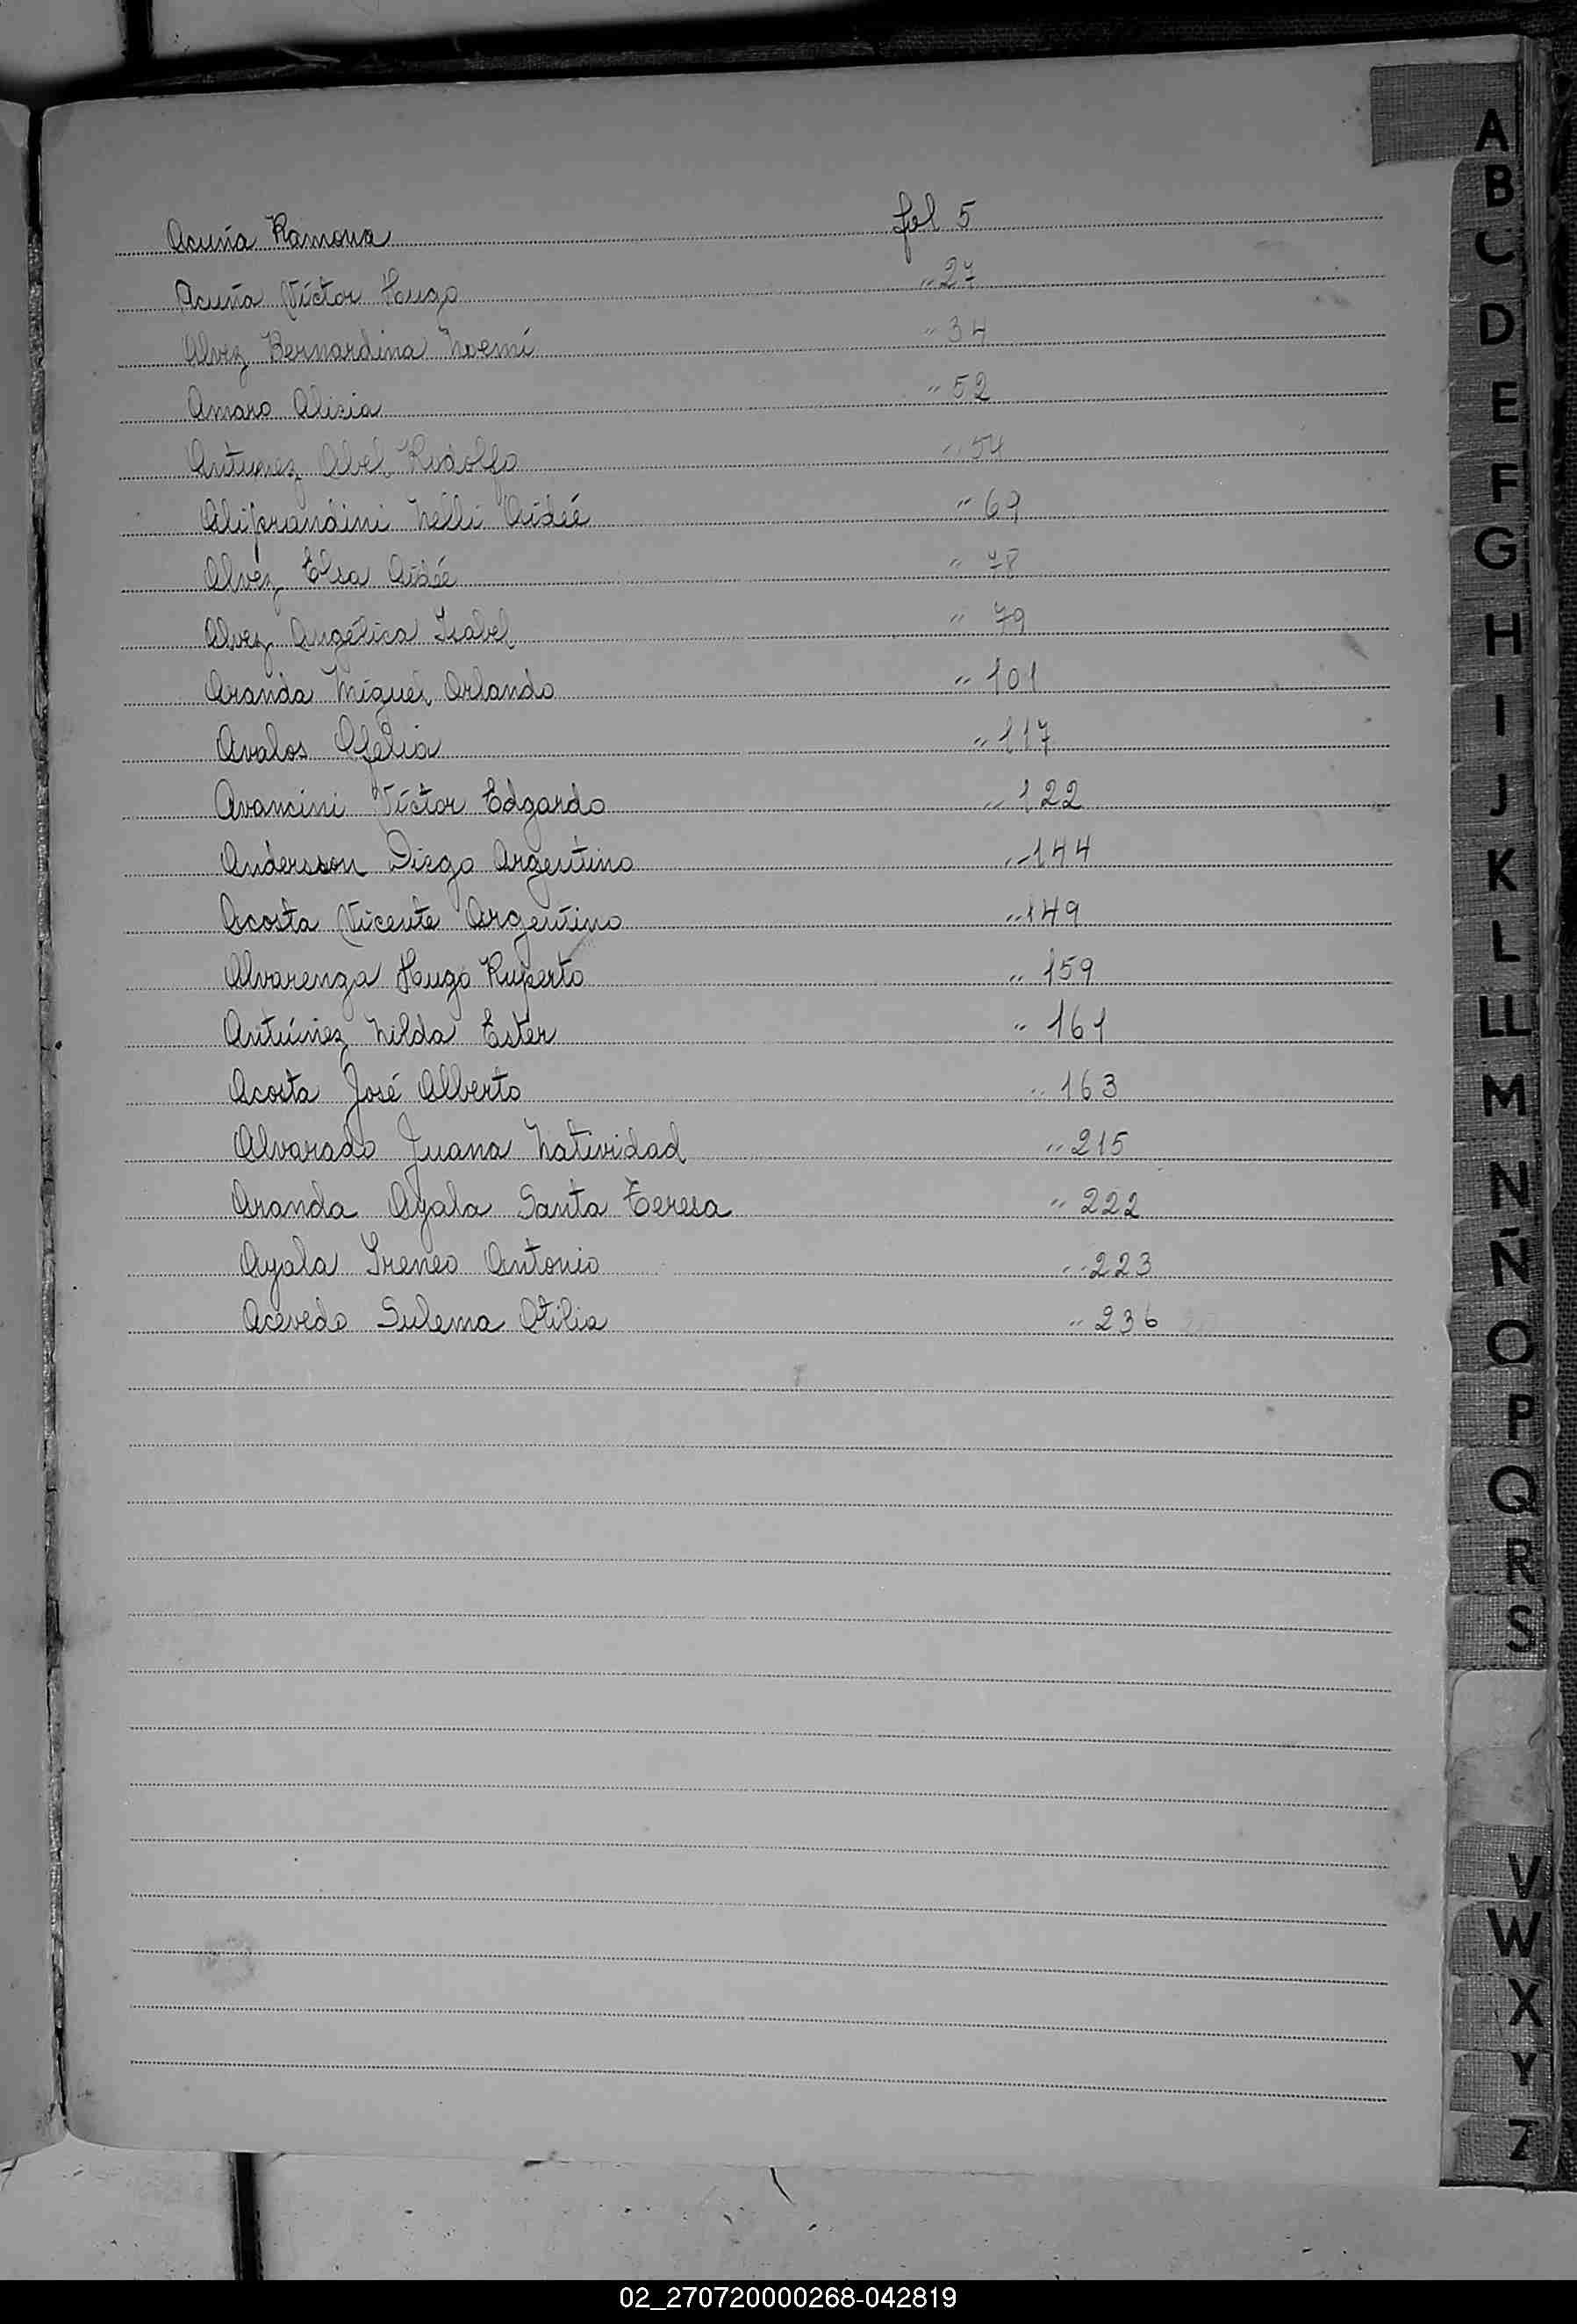 Acuña Ramona fol 5
Acuña Víctor Hugo " 27
Alvez Bernardina Noemí " 34
Amaro Alicia " 52
Antunez Abel Rodolfo " 54
Aliprandini Nélli Aidéé " 69
Alvez Elsa Aidée " 78
Alvez Angélica Isabel " 79
Aranda Miguel Orlando " 101
Avalos Ofelia " 117
Avancini Víctor Edgardo " 122
Andersson Diego Argentino " 144
Acosta Vicente Argentino " 149
Alvarenga Hugo Ruperto " 159
Antúnez Nilda Ester " 161
Acosta José Alberto " 163
Alvarado Juana Natividad " 215
Aranda Ayala Santa Teresa " 222
Ayala Ireneo Antonio " 223
Acevedo Sulema Otilia " 236
A
B
C
D
E
F
G
H
I
J
K
L
LL
M
N
Ñ
O
P
Q
R
S
V
W
X
Y
Z
02_270720000268-042819